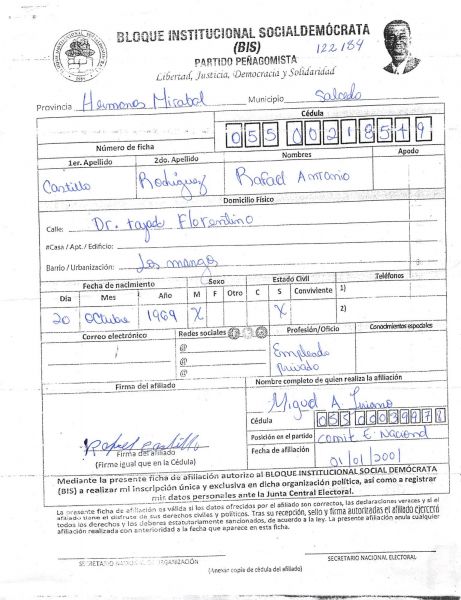 BLOQUE INSTITUCIONAL SOCIALDEMÓCRATA
(BIS)
122184
PARTIDO PEÑAGOMISTA
Libertad, Justicia, Democracia y Solidaridad
Provincia Hermanas Mirabal Municipio Salcedo
Cédula
Número de ficha 055 0021857 9
1er. Apellido 2do. Apellido Nombres Apodo
Castillo Rodríguez Rafael Antonio
Domicilio Físico
Calle: Dr. tejada Florentino
#Casa / Apt. / Edificio:
Barrio / Urbanización: Los mangos
Fecha de nacimiento Sexo Estado Civil Teléfonos
Día Mes Año M F Otro C S Conviviente 1)
20 Octubre 1969 X X 2)
Correo electrónico Redes sociales Profesión/Oficio Conocimientos especiales
@ Empleado
@ privado
@
Firma del afiliado Nombre completo de quien realiza la afiliación
Miguel A.
Cédula 055 0003997 8
Rafael Castillo Posición en el partido Comite E. Nacional
Firma del afiliado Fecha de afiliación 01/01/2001
(Firma igual que en la Cédula)
Mediante la presente ficha de afiliación autorizo al BLOQUE INSTITUCIONAL SOCIAL DEMÓCRATA
(BIS) a realizar mi inscripción única y exclusiva en dicha organización política, así como a registrar
mit datos personales ante la Junta Central Electoral.
La presente ficha de afiliación es válida si los datos ofrecidos por el afiliado son correctos, las declaraciones veraces y si el
afiliado tiene el disfrute de sus derechos civiles y políticos. Tras su recepción, sello y firma autorizadas el afiliado ejercerá
todos los derechos y los deberes estatutariamente sancionados, de acuerdo a la ley. La presente afiliación anula cualquier
afiliación realizada con anterioridad a la fecha que aparece en esta ficha.
SECRETARIO NACIONAL DE ORGANIZACIÓN SECRETARIO NACIONAL ELECTORAL
(Anexar copia de cédula del afiliado)